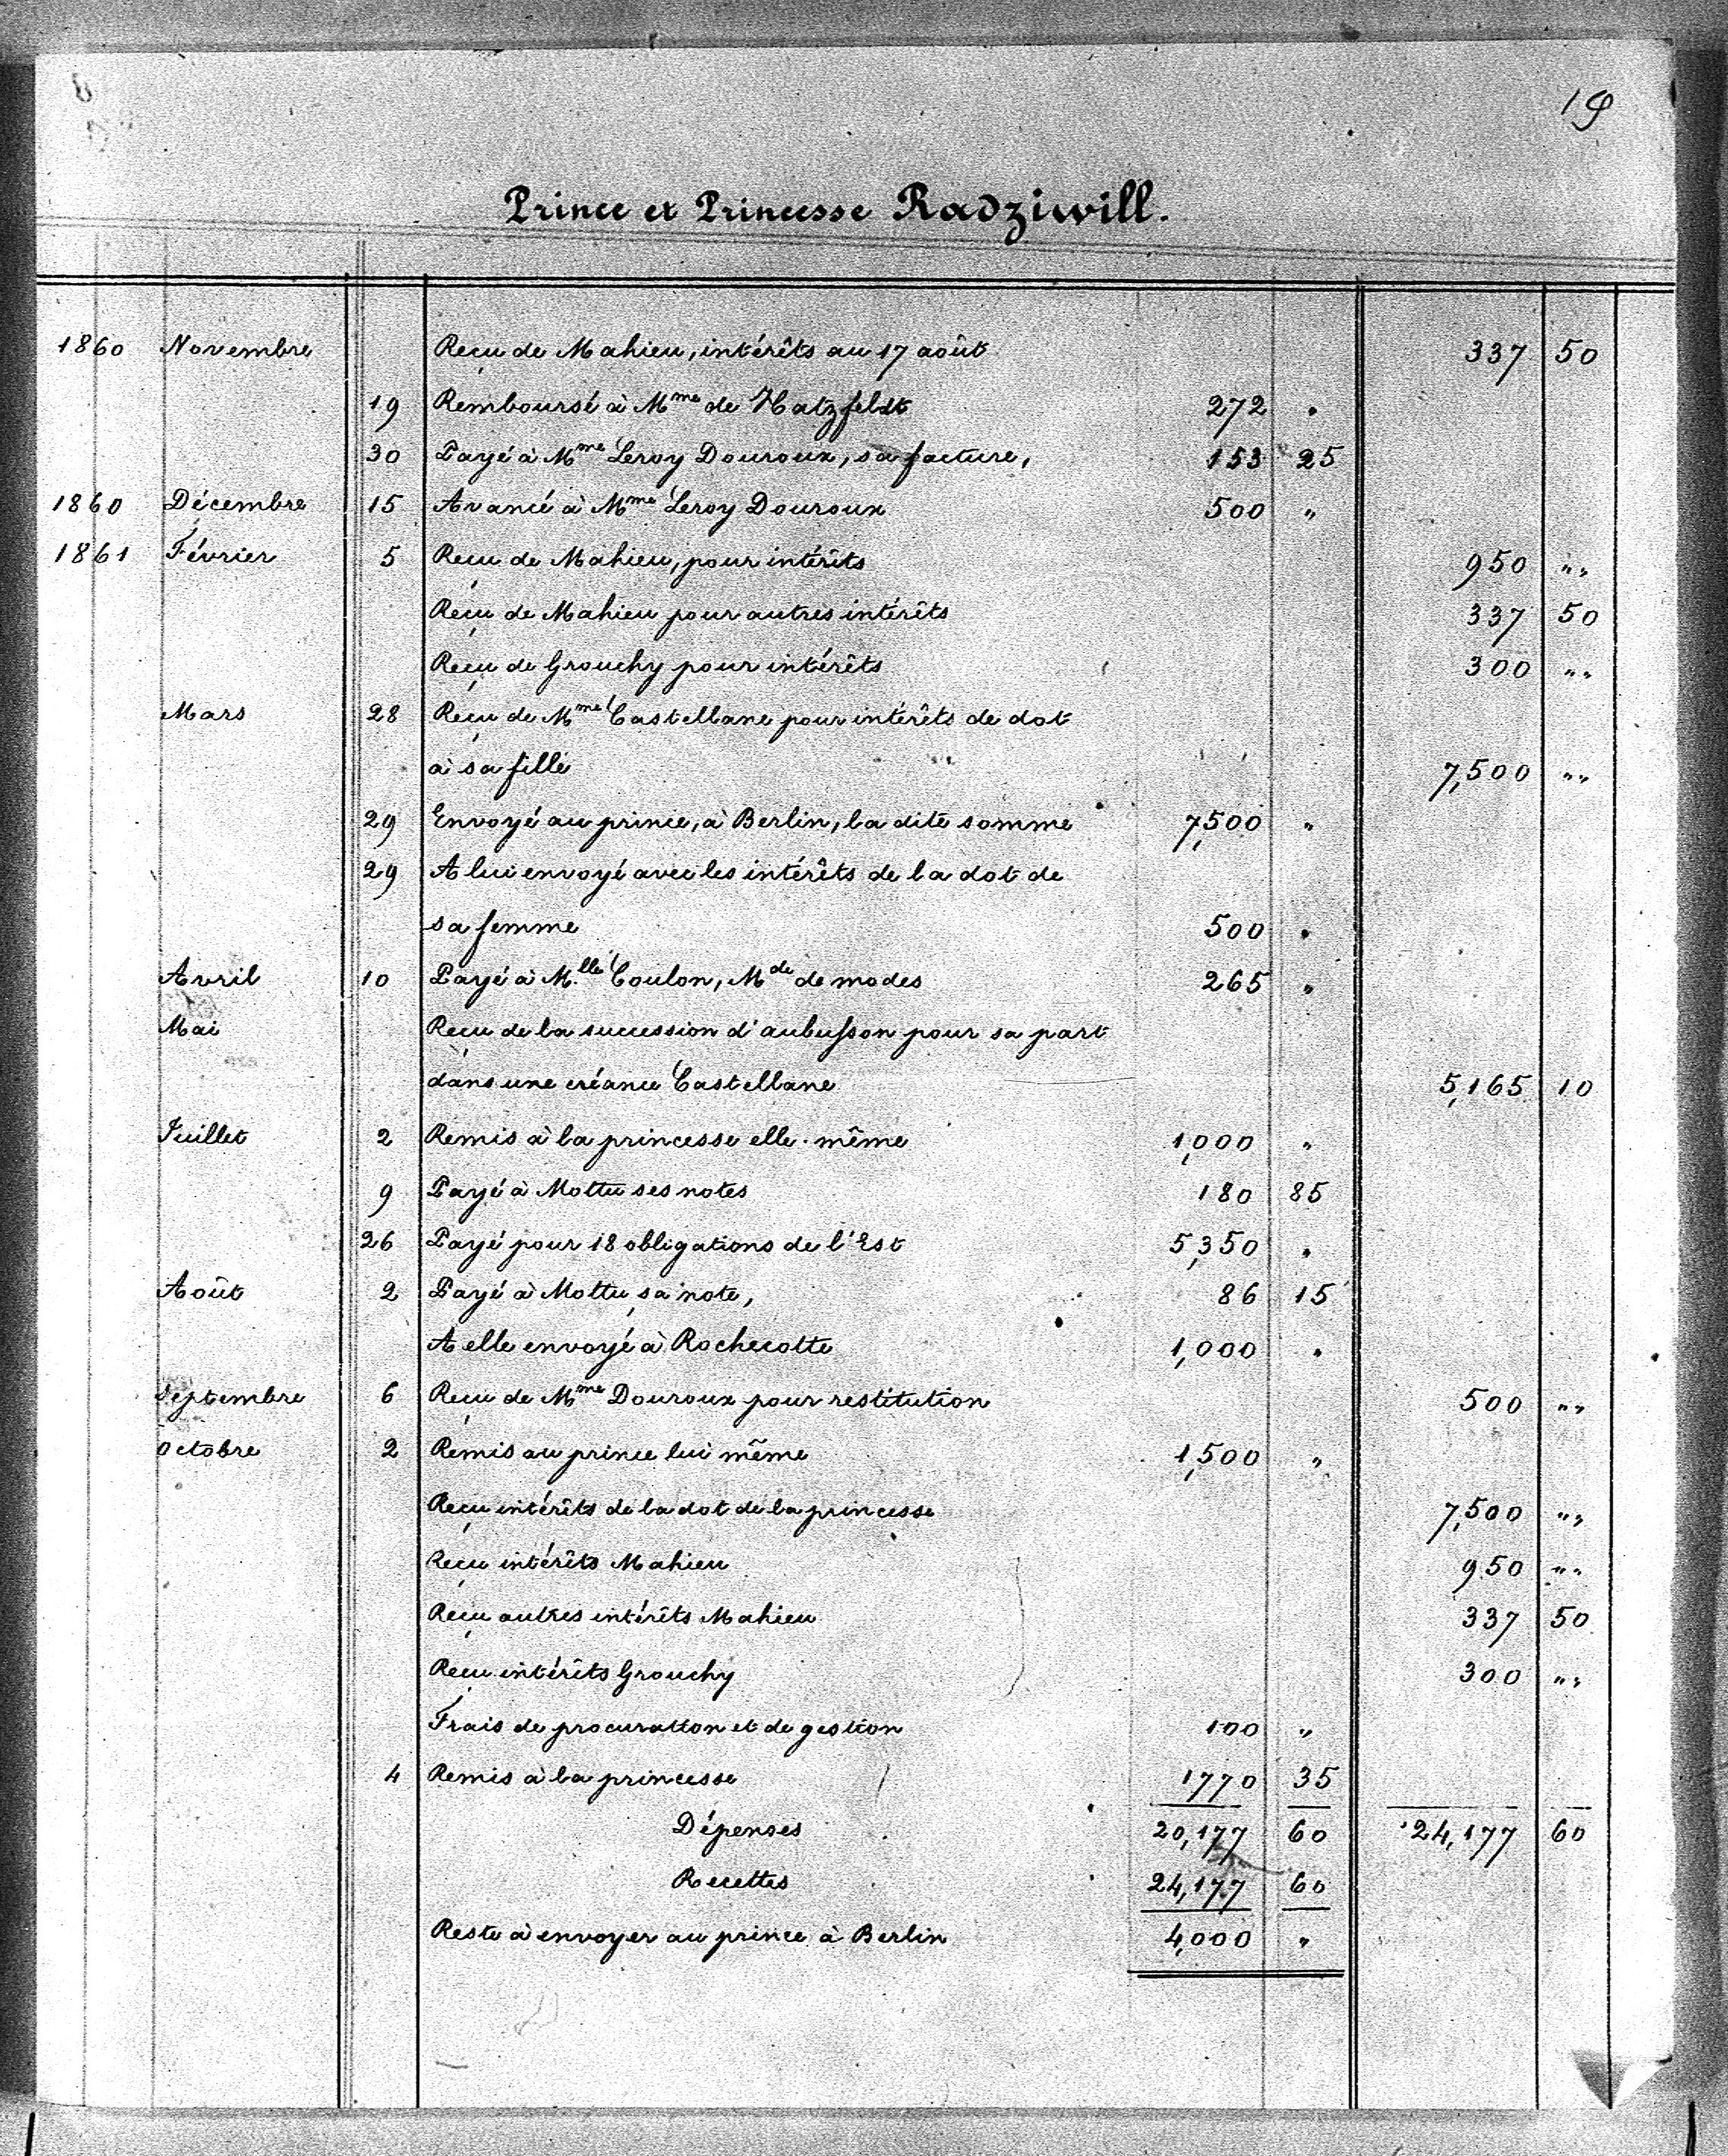 19
Prince et Princesse Radziwill.
1860 Novembre Reçu de Mahieu, intérêts au 17 août 337 50
19 Remboursé à Mme de Hatzfeldt 272 "
30 Payé à Mme Leroy Douroux, sa facture, 153 25
1860 Décembre 15 Avancé à Mme Leroy Douroux 500 "
1861 Février 5 Reçu de Mahieu, pour intérêts 950 ""
Reçu de Mahieu pour autres intérêts 337 50
Reçu de Grouchy pour intérêts 300 ""
Mars 28 Reçu de Mme Castellane pour intérêts de dot
à sa fille 7,500 ""
29 Envoyé au prince, à Berlin, la dite somme 7,500 "
29 A lui envoyé avec les intérêts de la dot de
sa femme 500 "
Avril 10 Payé à Mlle Coulon, Mde de modes 265 "
Mai Reçu de la succession d'aubusson pour sa part
dans une créance Castellane 5,165 10
Juillet 2 Remis à la princesse elle-même 1,000 "
9 Payé à Mottu ses notes 180 85
26 Payé pour 18 obligations de l'Est 5,350 "
Août 2 Payé à Mottu sa note, 86 15
A elle envoyé à Rochecotte 1,000 "
Septembre 6 Reçu de Mme Douroux pour restitution 500 ""
Octobre 2 Remis au prince lui même 1,500 "
Reçu intérêts de la dot de la princesse 7,500 ""
Reçu intérêts Mahieu 950 ""
Reçu autres intérêts Mahieu 337 50
Reçu intérêts Grouchy 300 ""
Frais de procuration et de gestion 100 "
4 Remis à la princesse 1770 35
Dépenses 20,177 60 24,177 60
Recettes 24,177 60
Reste à envoyer au prince à Berlin 4,000 "